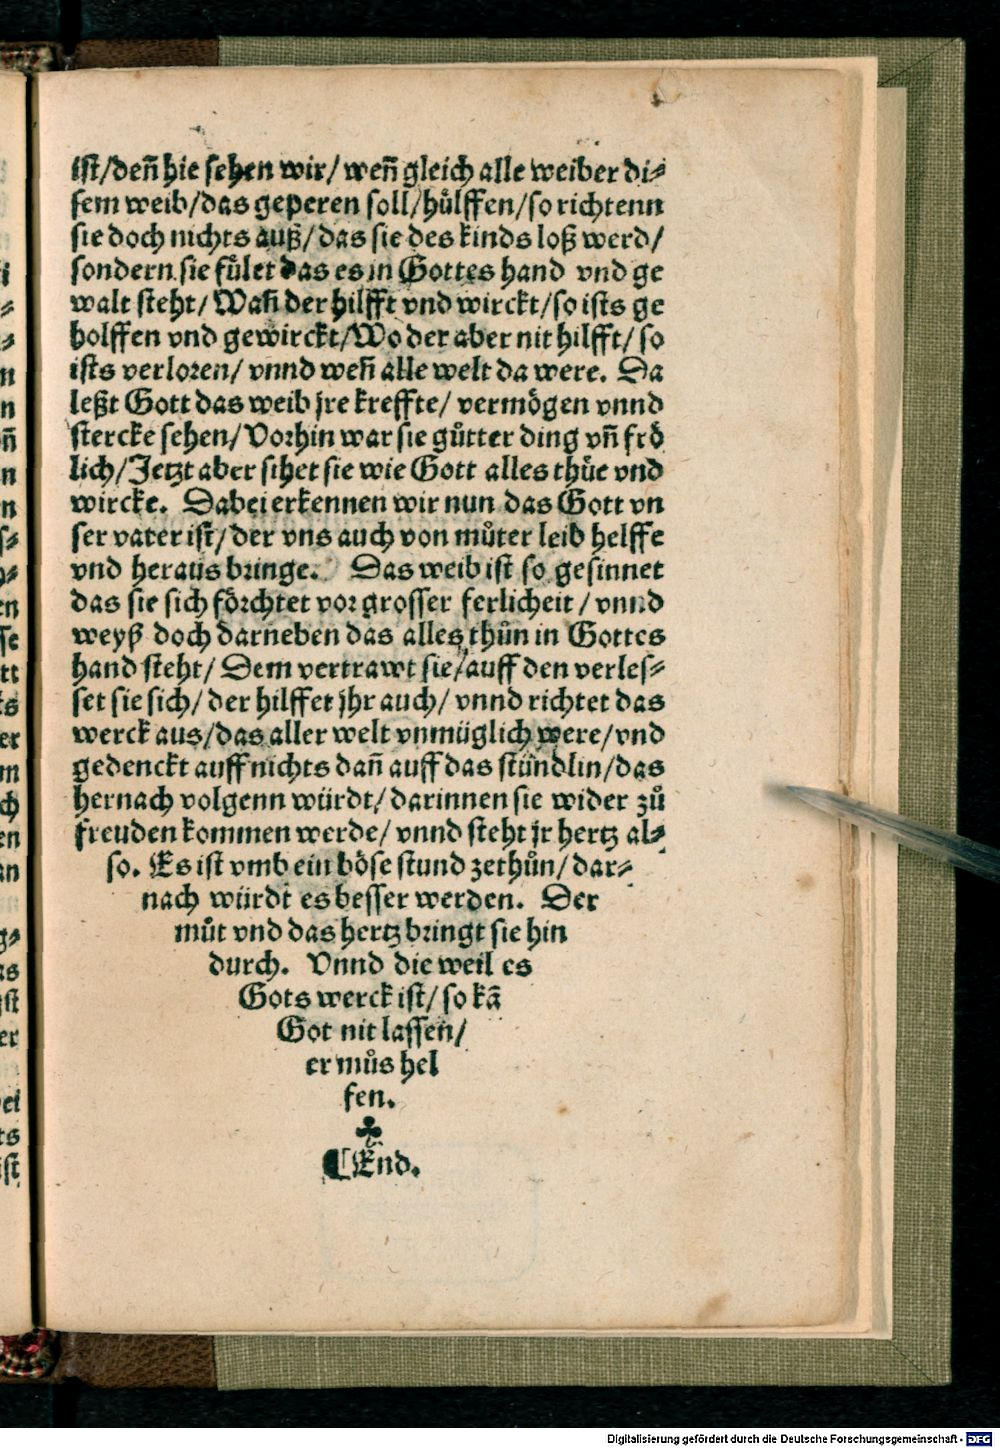 ist/ deñ hie sehen wir/ weñ gleich alle weiber di⸗
sem weib/ das geperen soll/ hůlffen/ so richtenn
sie doch nichts auß/ das sie des kinds loß werd/
sondern sie fůlet das es in Gottes hand vnd ge
walt steht/ Wañ der hilfft vnd wirckt/ so ists ge
holffen vnd gewirckt/ Wo der aber nit hilfft/ so
ists verloren/ vnnd weñ alle welt da were. Da
leßt Gott das weib jre kreffte/ vermögen vnnd
stercke sehen/ Vorhin war sie gůtter ding vñ frö
lich/ Jetzt aber sihet sie wie Gott alles thůe vnd
wircke. Dabei erkennen wir nun das Gott vn
ser vater ist/ der vns auch von můter leib helffe
vnd heraus bringe. Das weib ist so gesinnet
das sie sich förchtet vor grosser ferlicheit/ vnnd
weyß doch darneben das alles thůn in Gottes
hand steht/ Dem vertrawt sie/ auff den verles⸗
set sie sich/ der hilffet jhr auch/ vnnd richtet das
werck aus/ das aller welt vnmüglich were/ vnd
gedenckt auff nichts dañ auff das stündlin/ das
hernach volgenn würdt/ darinnen sie wider zů
freuden kommen werde/ vnnd steht jr hertz al⸗
so. Es ist vmb ein böse stund zethůn/ dar⸗
nach würdt es besser werden. Der
můt vnd das hertz bringt sie hin
durch. Vnnd die weil es
Gots werck ist/ so kã
Got nit lassen/
er můs hel
fen.
♣
¶ End.
Digitalisierung gefördert durch die Deutsche Forschungsgemeinschaft - DFG